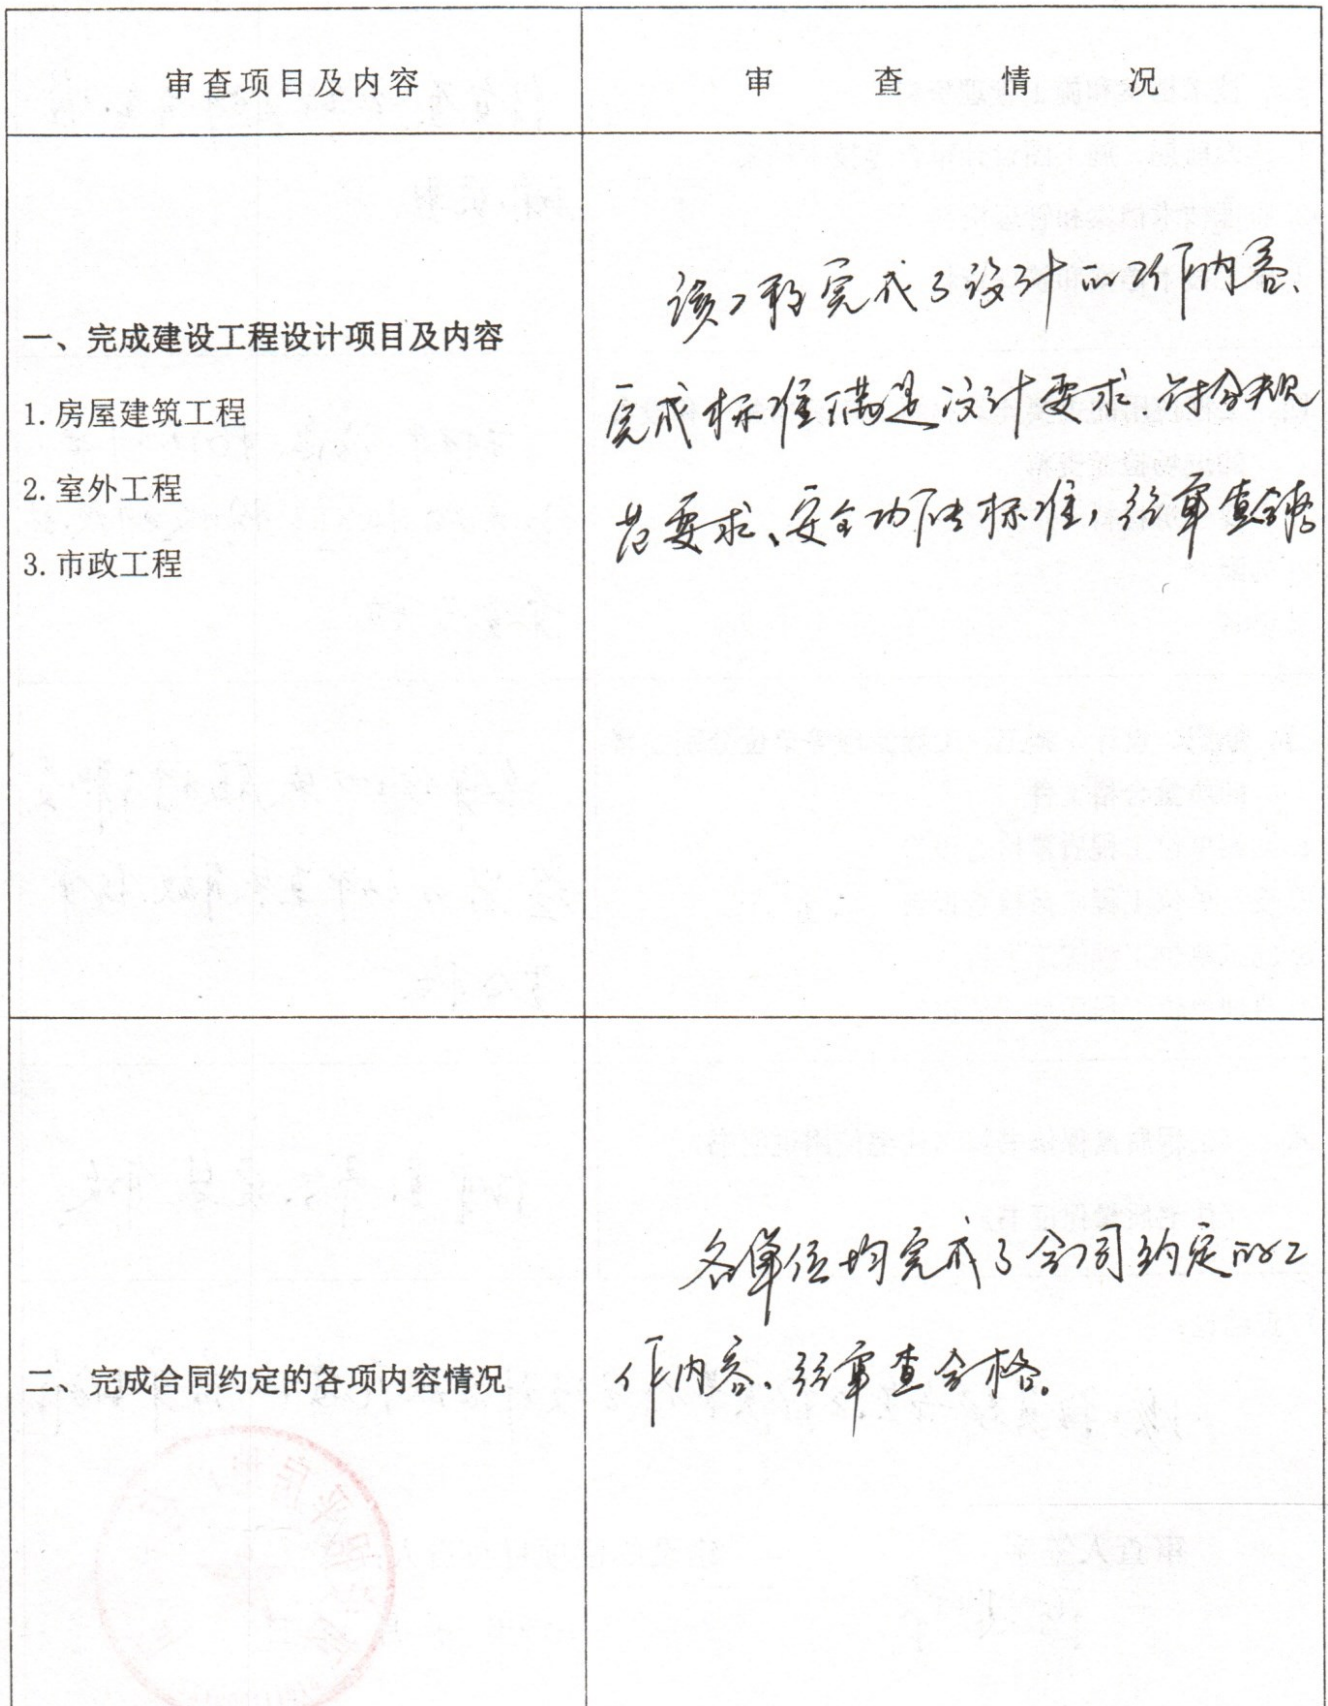 审查项目及内容
审查情况
一、完成建设工程设计项目及内容
1.房屋建筑工程
2.室外工程
3.市政工程
该工程完成了设计的工作内容、
完成标准满足设计要求.符合规
范要求、安全功能标准，经审查合格
二、完成合同约定的各项内容情况
各单位均完成了合同约定的工
作内容、经审查合格。
审查人